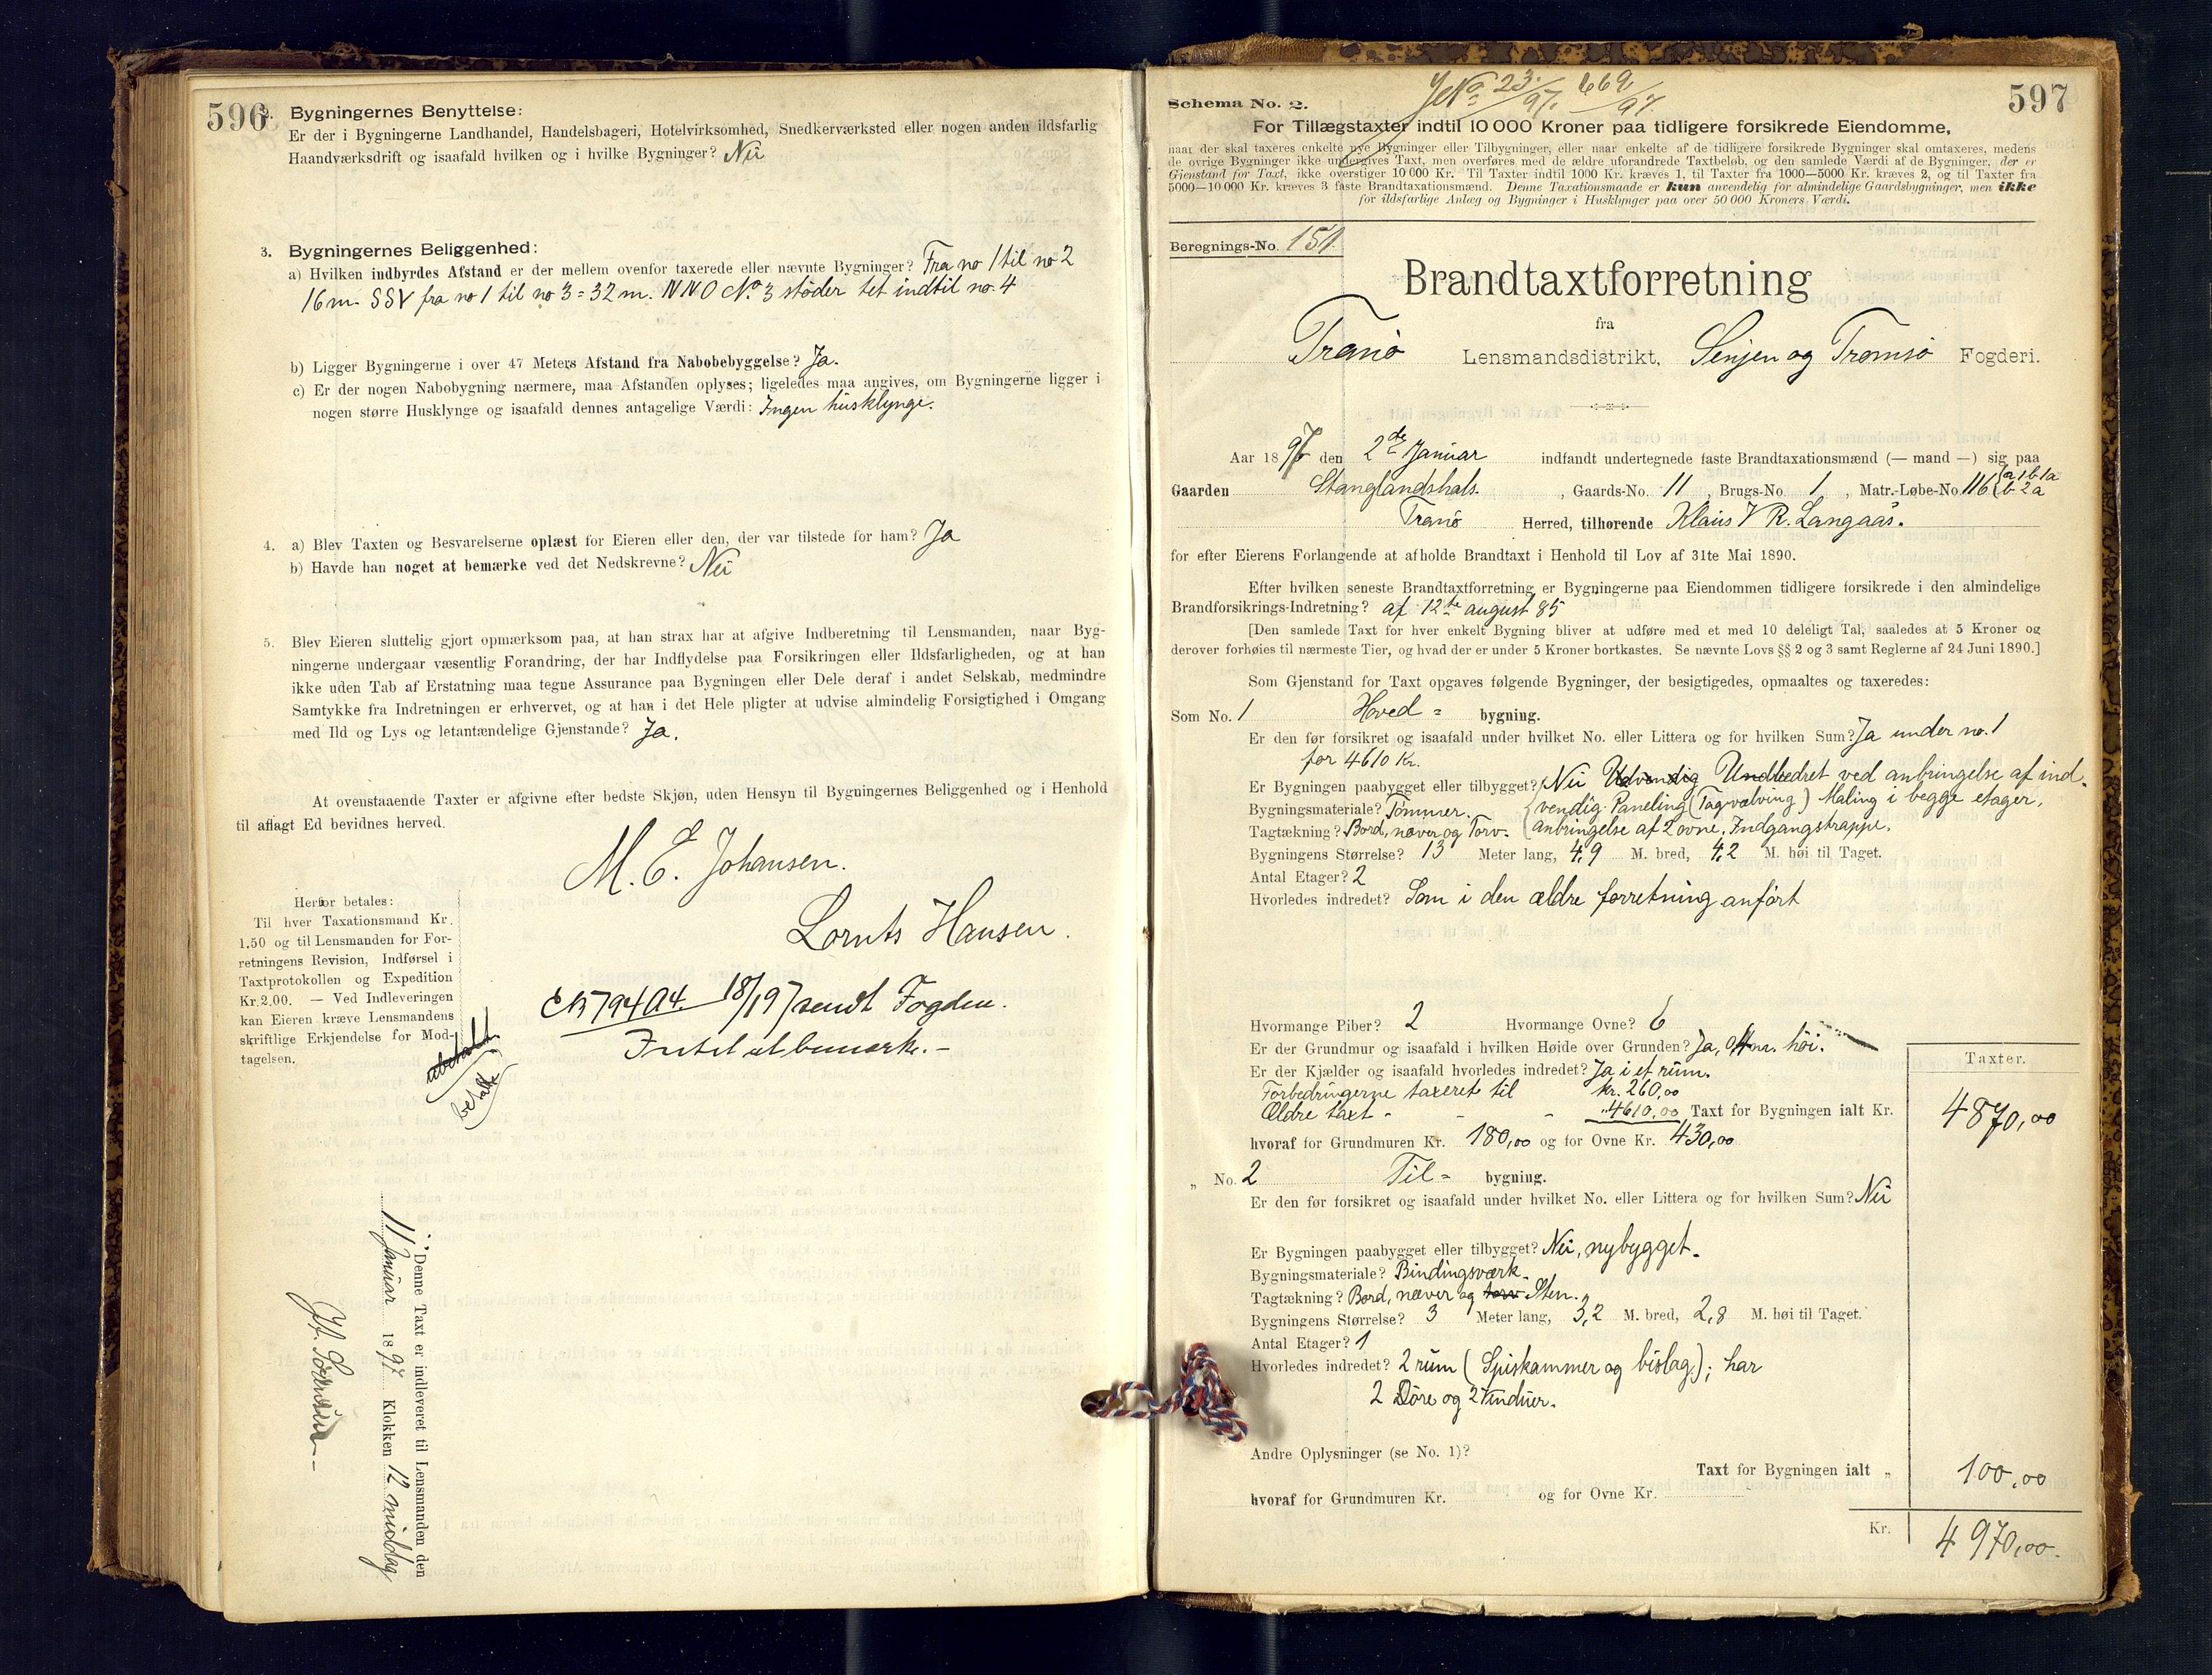 596
2. Bygningernes Benyttelse:
Er der i Bygningerne Landhandel, Handelsbageri, Hotelvirksomhed, Snedkerværksted eller nogen anden ildsfarlig
Haandværksdrift og isaafald hvilken og i hvilke Bygninger? Nei
3. Bygningernes Beliggenhed:
a) Hvilken indbyrdes Afstand er der mellem ovenfor taxerede eller nævnte Bygninger? Fra no 1 til no 2
16 m. SSV fra no 1 til no 3 = 32 m. NNO No. 3 støder tet indtil no. 4
b) Ligger Bygningerne i over 47 Meters Afstand fra Nabobebyggelse? Ja.
c) Er der nogen Nabobygning nærmere, maa Afstanden oplyses; ligeledes maa angives, om Bygningerne ligger i
nogen større Husklynge og isaafald dennes antagelige Værdi: Ingen husklynge.
4. a) Blev Taxten og Besvarelserne oplæst for Eieren eller den, der var tilstede for ham? Ja
b) Havde han noget at bemærke ved det Nedskrevne? Nei
5. Blev Eieren sluttelig gjort opmærksom paa, at han strax har at afgive Indberetning til Lensmanden, naar Byg-
ningerne undergaar væsentlig Forandring, der har Indflydelse paa Forsikringen eller Ildsfarligheden, og at han
ikke uden Tab af Erstatning maa tegne Assurance paa Bygningen eller Dele deraf i andet Selskab, medmindre
Samtykke fra Indretningen er erhvervet, og at han i det Hele pligter at udvise almindelig Forsigtighed i Omgang
med Ild og Lys og letantændelige Gjenstande? Ja.
At ovenstaaende Taxter er afgivne efter bedste Skjøn, uden Hensyn til Bygningernes Beliggenhed og i Henhold
til aflagt Ed bevidnes herved.
M. E. Johansen.
Lornts Hansen.
Herfor betales:
Til hver Taxationsmand Kr.
1.50 og til Lensmanden for For-
retningens Revision, Indførsel i
Taxtprotokollen og Expedition
Kr. 2.00. — Ved Indleveringen
kan Eieren kræve Lensmandens
skriftlige Erkjendelse for Mod-
tagelsen.
ubetalt
betalt
18/1 97 sendt Fogden.
Intet at bemærke. –
Denne Taxt er indleveret til Lensmanden den
11 Januar 1897 Klokken 12 middag
597
Schema No. 2.
JNo 23/97. 669/97
For Tillægstaxter indtil 10 000 Kroner paa tidligere forsikrede Eiendomme,
naar der skal taxeres enkelte nye Bygninger eller Tilbygninger, eller naar enkelte af de tidligere forsikrede Bygninger skal omtaxeres, medens
de øvrige Bygninger ikke undergives Taxt, men overføres med de ældre uforandrede Taxtbeløb, og den samlede Værdi af de Bygninger, der er
Gjenstand for Taxt, ikke overstiger 10 000 Kr. Til Taxter indtil 1000 Kr. kræves 1, til Taxter fra 1000—5000 Kr. kræves 2, og til Taxter fra
5000—10 000 Kr. kræves 3 faste Brandtaxationsmænd. Denne Taxationsmaade er kun anvendelig for almindelige Gaardsbygninger, men ikke
for ildsfarlige Anlæg og Bygninger i Husklynger paa over 50 000 Kroners Værdi.
Beregnings-No. 151.
Brandtaxtforretning
fra
Tranø Lensmandsdistrikt, Senjen og Tromsø Fogderi.
Aar 1897 den 2de Januar indfandt undertegnede faste Brandtaxationsmænd (— mand —) sig paa
Gaarden Stanglandshals., Gaards-No. 11, Brugs-No. 1, Matr.-Løbe-No. 116 {a 1 b 1a
b 2 a
Tranø Herred, tilhørende Klaus V R. Langaas.
for efter Eierens Forlangende at afholde Brandtaxt i Henhold til Lov af 31te Mai 1890.
Efter hvilken seneste Brandtaxtforretning er Bygningerne paa Eiendommen tidligere forsikrede i den almindelige
Brandforsikrings-Indretning? af 12te august 85
[Den samlede Taxt for hver enkelt Bygning bliver at udføre med et med 10 deleligt Tal, saaledes at 5 Kroner og
derover forhøies til nærmeste Tier, og hvad der er under 5 Kroner bortkastes. Se nævnte Lovs §§ 2 og 3 samt Reglerne af 24 Juni 1890.]
Som Gjenstand for Taxt opgaves følgende Bygninger, der besigtigedes, opmaaltes og taxeredes:
Som No. 1 Hoved = bygning.
Er den før forsikret og isaafald under hvilket No. eller Littera og for hvilken Sum? Ja under no. 1
for 4610 Kr.
Er Bygningen paabygget eller tilbygget? Nei Udvendig Undbedret ved anbringelse af ind-
Bygningsmateriale? Tømmer. {vendig Paneling (Tagvælving) Maling i begge etager,
Tagtækning? Bord, næver og Torv. {anbringelse af 2 ovne. Indgangstrappe.
Bygningens Størrelse? 13 Meter lang, 4,9 M. bred, 4,2 M. høi til Taget.
Antal Etager? 2
Hvorledes indredet? Som i den ældre forretning anført
Hvormange Piber? 2 Hvormange Ovne? 6
Er der Grundmur og isaafald i hvilken Høide over Grunden? Ja, høi.
Er der Kjælder og isaafald hvorledes indredet? Ja i et rum.
Taxter.
Forbedringerne taxeret til kr. 260,00
Ældre taxt - - - " 4610,00 Taxt for Bygningen ialt Kr. 4870,00
hvoraf for Grundmuren Kr. 180,00 og for Ovne Kr. 430,00
„ No. 2 Til = bygning.
Er den før forsikret og isaafald under hvilket No. eller Littera og for hvilken Sum? Nei
Er Bygningen paabygget eller tilbygget? Nei, nybygget.
Bygningsmateriale? Bindingsværk.
Tagtækning? Bord, næver og torv Sten.
Bygningens Størrelse? 3 Meter lang, 3,2 M. bred, 2,8 M. høi til Taget.
Antal Etager? 1
Hvorledes indredet? 2 rum (Spiskammer og bislag); har
2 Døre og 2 Vinduer.
Andre Oplysninger (se No. 1)?
Taxt for Bygningen ialt „ 100,00
hvoraf for Grundmuren Kr. og for Ovne Kr.
Kr. 4970,00.